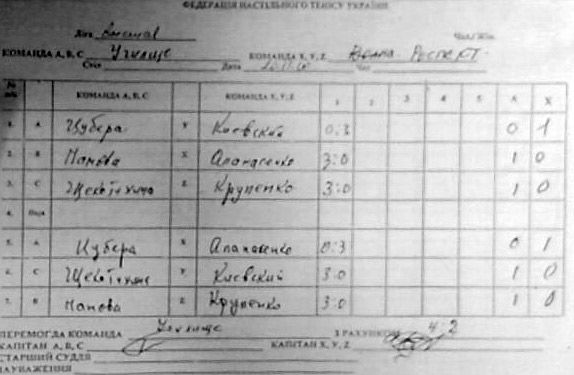 ФЕДЕРАЦІЯ НАСТІЛЬНОГО ТЕНІСУ УКРАЇНИ
Ліга Чол/Жін
КОМАНДА А, В, С Училище КОМАНДА X, Y, Z Респект
Стіл Дата Час
№ КОМАНДА А, В, С КОМАНДА X, Y, Z 1 2 3 4 5 А X
1. А Цубера Y Киевский 0:3 0 1
2. В Панова X Апанасенко 3:0 1 0
3. С Щекотихина Z Крупенко 3:0 1 0
4. Пара
5. А Цубера X Апанасенко 0:3 0 1
6. С Y Киевский 3:0 1 0
7. В Панова Z Крупенко 3:0 1 0
ПЕРЕМОГЛА КОМАНДА Училище З РАХУНКОМ 4:2
КАПІТАН А, В, С КАПІТАН X, Y, Z
СТАРШИЙ СУДДЯ
ЗАУВАЖЕННЯ